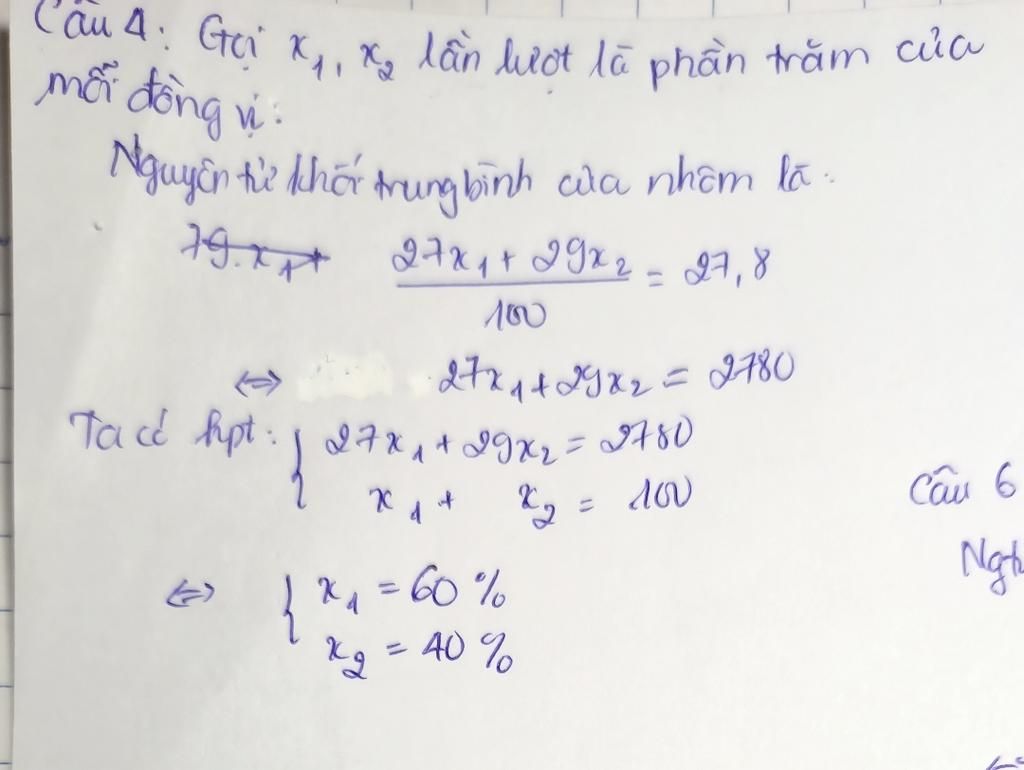 Câu 4: Gọi x₁, x₂ lần lượt là phần trăm của
mỗi đồng vị:
Nguyên tử khối trung bình của nhôm là.
79.x₁+ (27x₁ + 29x₂)/100 = 27,8
⇔ 27x₁ + 29x₂ = 2780
Ta có hpt: { 27x₁ + 29x₂ = 2780
x₁ + x₂ = 100
Câu 6
⇔ { x₁ = 60 %
x₂ = 40 %